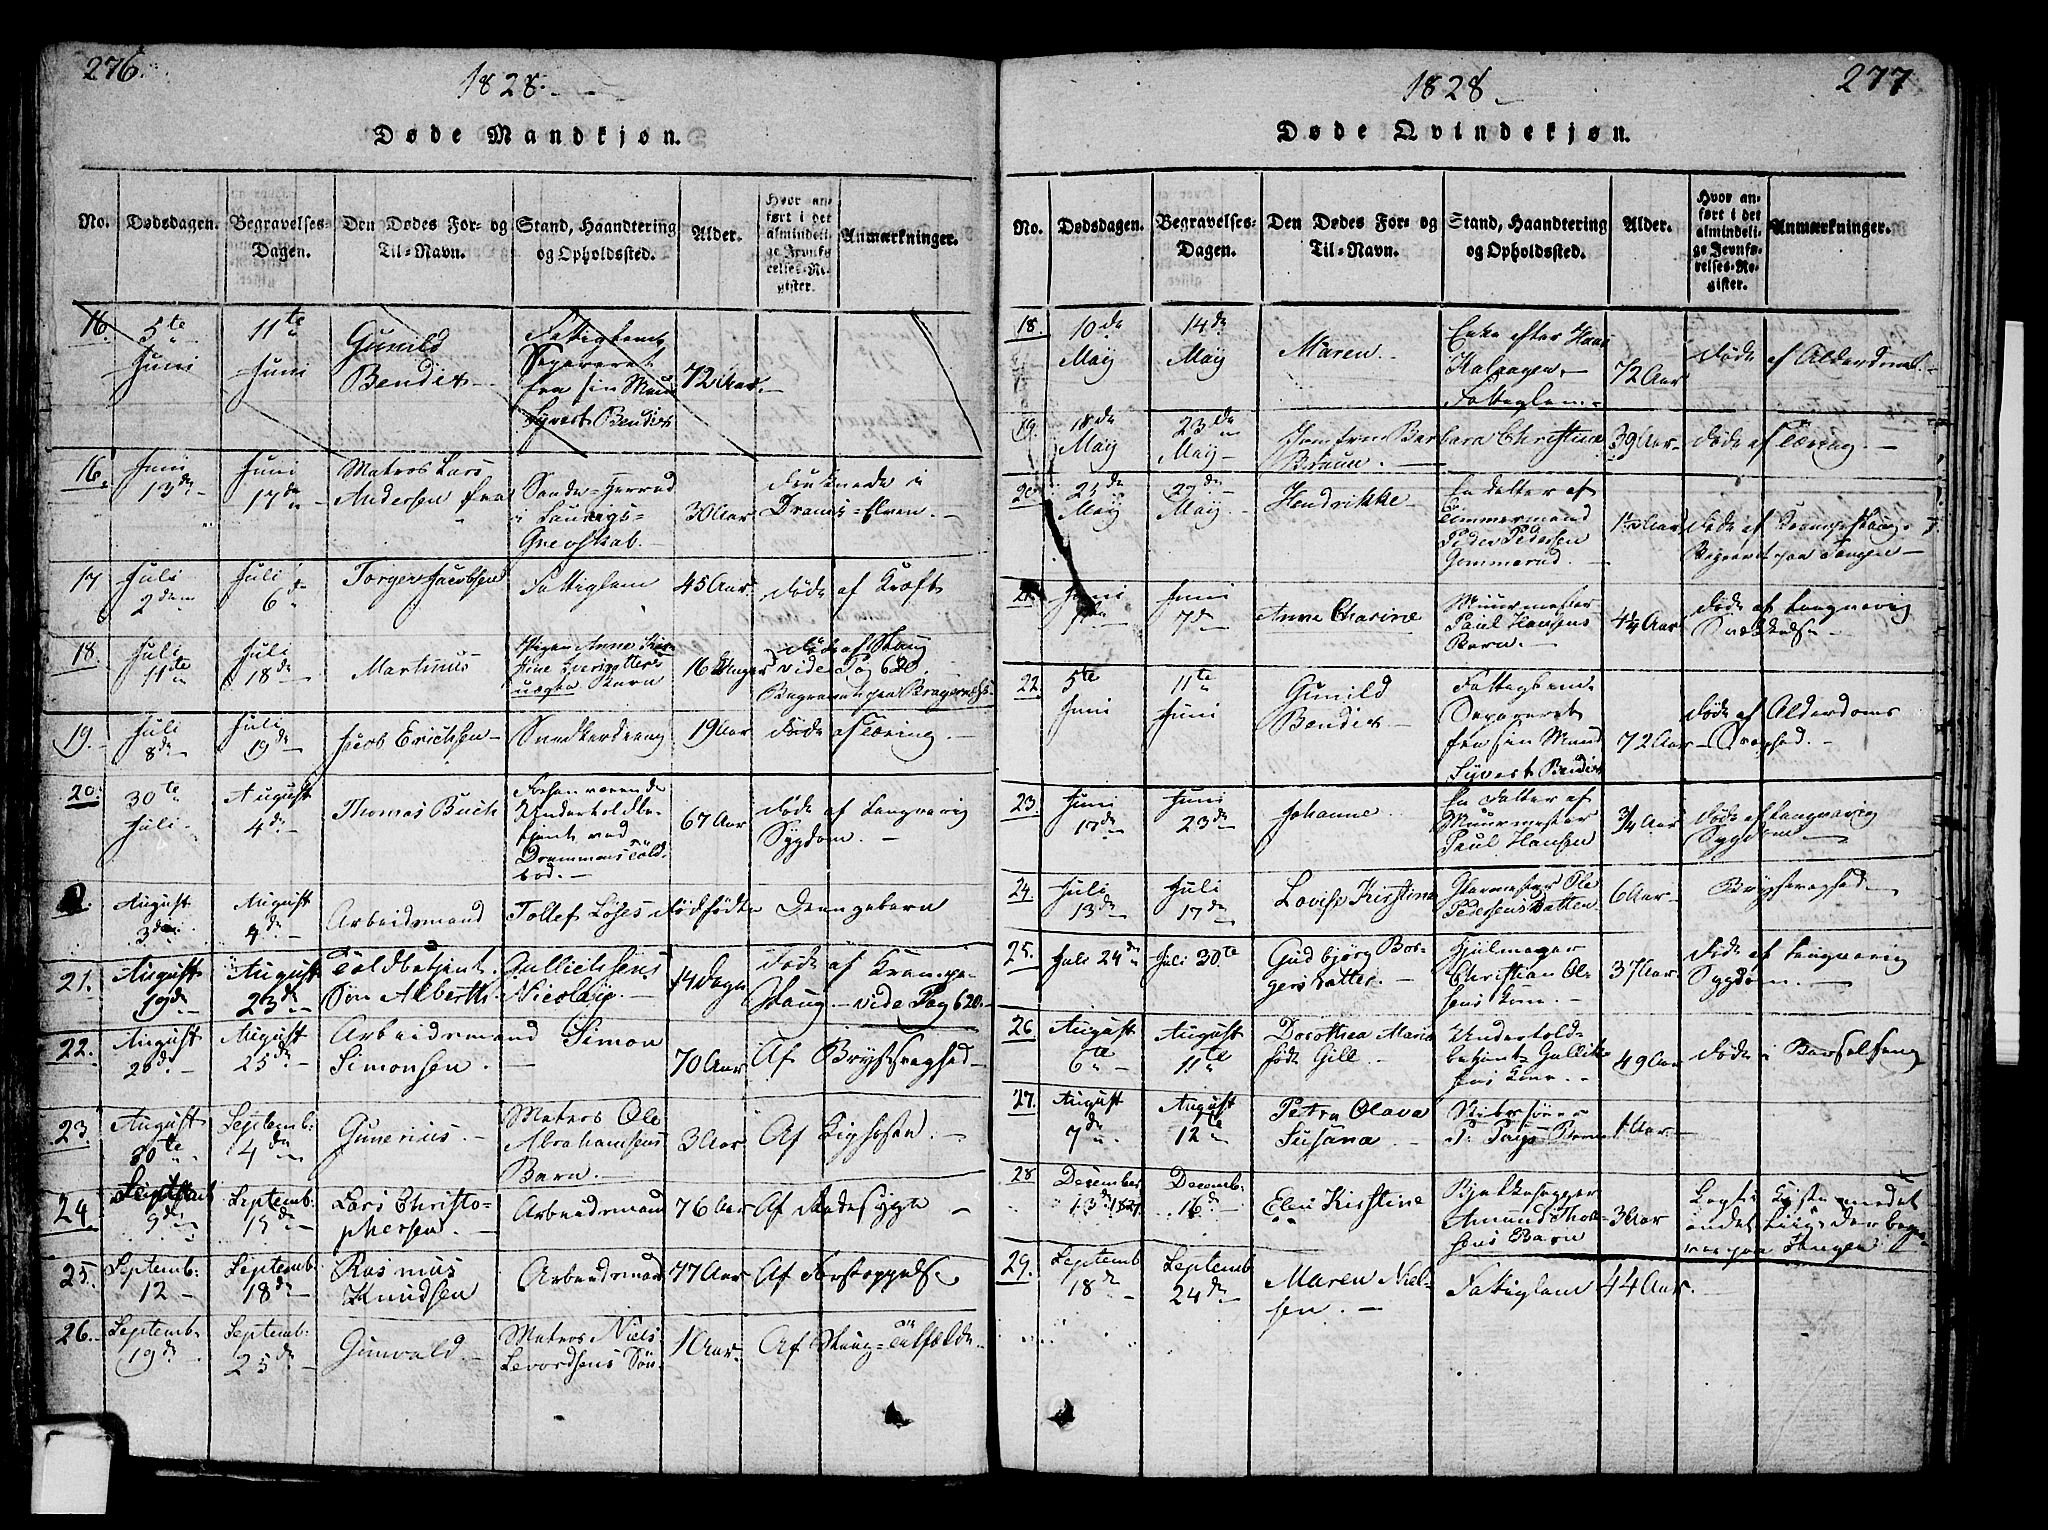 276.
1828.
Døde Mandkjøn.
No.
Dødsdagen.
Begravelses-
Dagen.
Den Dødes For- og
Til-Navn.
Stand, Haandtering
og Opholdssted.
Alder.
Hvor an-
ført i det
almindeli-
ge Jevnfø-
relses-Re-
gister.
Anmærkninger.
16.
5te
Juni
11te
Juni
Gunild
Bendix
Fattiglem
Separeret
fra sin Man
Syvert Bendix
72 Aar.
16.
Juni
13de
Juni
17de
Matros Lars
Andersen fra
Sande-Herred
i Laurvigs-
Grevskab.
30 Aar
Druknede i
Drams-Elven.
17
Juli
2den
Juli
6te
Torger Jacobsen
Fattiglem
45 Aar
døde af Kræft
18.
Juli
11te
Juli
18de
Martinus
Pigen Anne Kir-
stine
uægte Barn
16 Uger
døde af Slag
vide Pag 620.
Begravet paa Bragernæs.
19.
Juli
8de
Juli
19de
Jacob Erichsen
Snedkerdreng
19 Aar
døde af Tæring.
20.
30te
Juli
August
4de
Thomas Buch
Forhenværende
Underholdbe-
tjent ved
Drammens Told-
bod.
67 Aar
døde af langvarig
Sygdom.
August
3de
August
9de
Arbeidsmand
Tollef Loses
dødfødte
Drengebarn
21.
August
19de
August
23de
Toldbetjent Gullichsens
Søn Alberth Nicolai
14 Dage
Døde af Krampe-
Slag. vide Pag 620.
22.
August
20de
August
25de
Arbeidsmand Simon
Simonsen.
70 Aar
Af Brystsvaghed
23.
August
30te
Septemb:
4de
Gunerius.
Matros Ole
Abrahamsens
Barn.
3 Aar
Af Kighosten.
24.
9de
Septemb:
15de
Lars Christo-
phersen.
Arbeidsmand
76 Aar
Af Radesyge
25.
Septemb:
12
Septemb:
18de
Rasmus
Knudsen
Arbeidsmand
77 Aar
Af Forstoppelse
26.
Septemb.
19de
Septemb:
25de
Gunvald
Matros Niels
Levordsens Søn
1 Aar.
Af Slag-Tilfælde
277
1828
Døde Qvindekjøn.
No.
Dødsdagen.
Begravelses-
Dagen.
Den Dødes For- og
Til-Navn.
Stand, Haandtering
og Opholdssted.
Alder.
Hvor an-
ført i det
almindeli-
ge Jevnfø-
relses-Re-
gister.
Anmærkninger.
18.
10de
Maÿ
14de
Maÿ
Maren
Enke efter Hans
Fattiglem
72 Aar
døde af Alderdom.
19.
18de
Maÿ
23de
Maÿ
Jomfru Barbara Christine
Braun.
39 Aar
døde af Tæring.
20.
23de
Maÿ
29de
Maÿ
Hendrikke
En datter af
Temmermand
Peder Pedersen
Gommerud.
døde af Krampeslag.
Begravet paa Tangen
21.
Juni
Juni
7de
Anne Charine
Muurmester
Paul Hansens
Barn.
Aar
døde af langvarig
Svækkelse
22
5te
Juni
11te
Juni
Gunild
Bendix
Fattiglem
Separeret
fra sin Mand
Syvert Bendix
72 Aar
døde af Alderdoms
Svaghed.
23.
Juni
17de
Juni
23de
Johanne
En Datter af
Muurmester
Paul Hansen
3/4 Aar
døde af langvarig
Sygdom
24.
Juli
13de
Juli
17de
Lovise Kirstine
Glarmester Ole
Pedersens datter
6 Aar
Brystsvaghed
25.
Juli 24de
Juli 30te
Gudbjørg Bor-
gersdatter.
Hjulmager
Christian Ol-
sens Kone.
37 Aar
døde af langvarig
Sygdom.
26
August
6te
August
11te
Dorothea Maria
født Gill.
Underhold-
betjent Gullik-
sens Kone.
49 Aar
døde i Barselseng
27.
August
7de
August
12te
Petra Olava
Susana
Barn
1 Aar.
28
December
13de 1827.
Decemb:
16de
Elen Kirstine
Amund Thor-
sens Barn
3 Aar
Lagt i Kiste med et
andet Liig der beg.
var paa Tangen.
29.
Septemb
18de
Septemb
24de
Maren Niel-
sen.
Fattiglem
44 Aar.